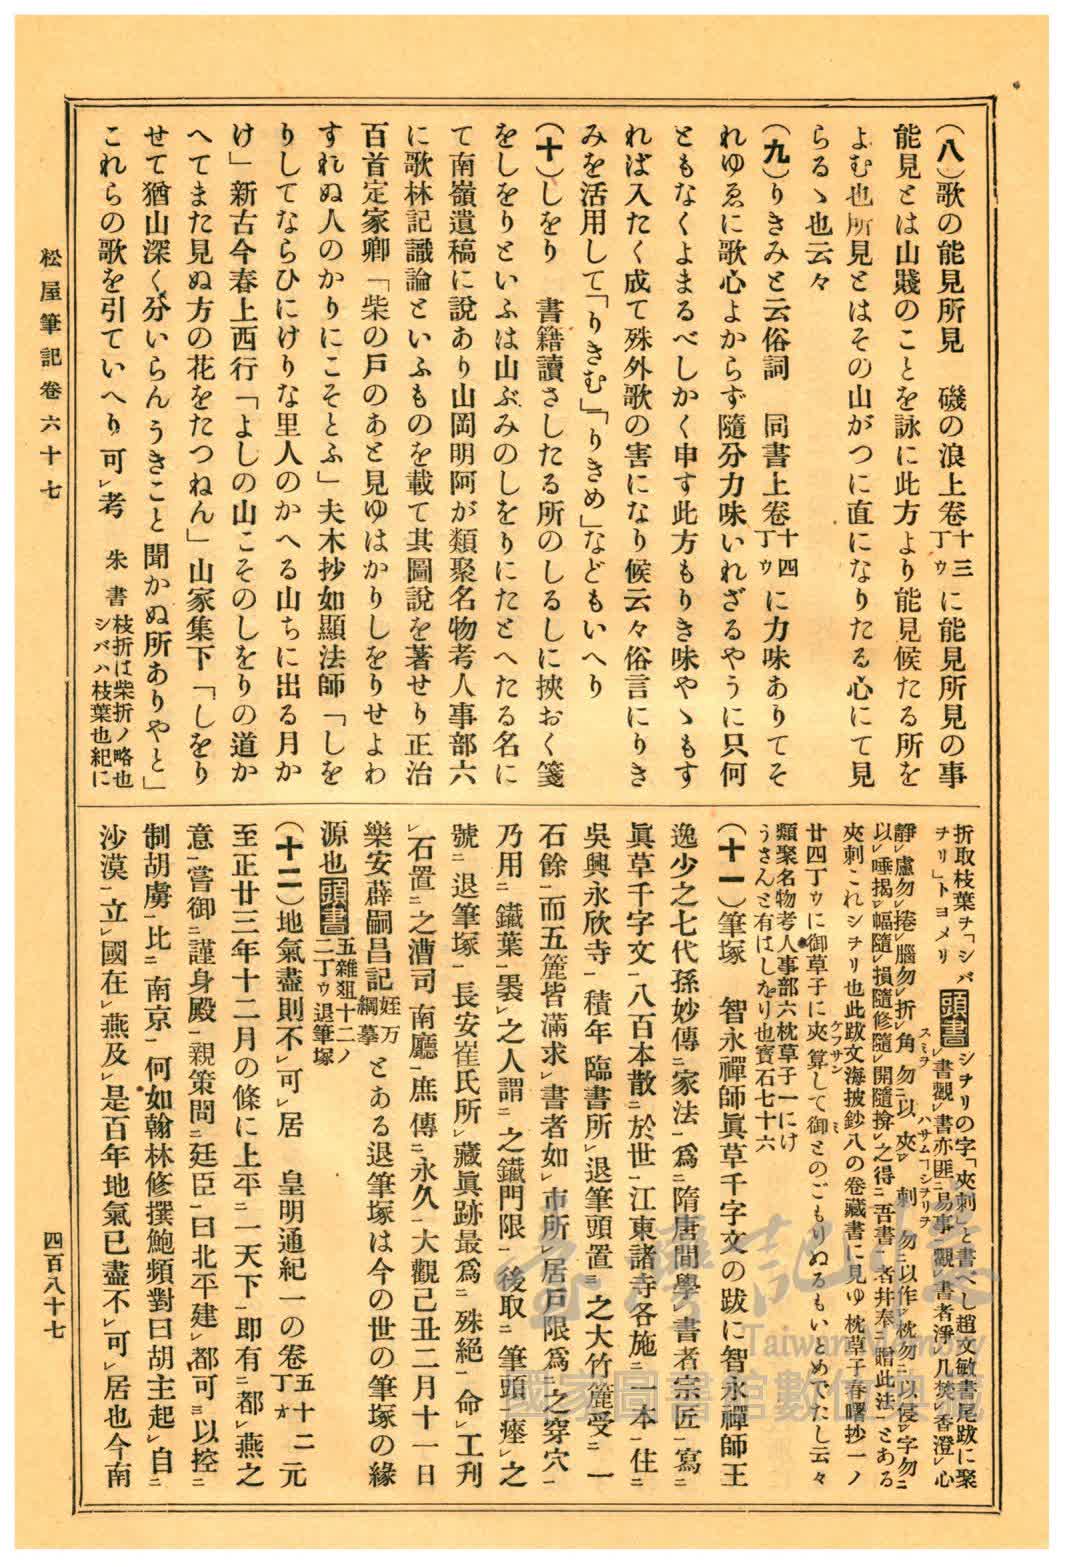 (八)歌の能見所見　磯の浪上卷十三丁ウに能見所見の事
能見とは山賤のことを詠に此方より能見候たる所を
よむ也所見とはその山がつに直になりたる心にて見
らるゝ也云々
(九)りきみと云俗詞　同書上卷十四丁ウに力味ありてそ
れゆゑに歌心よからず隨分力味いれざるやうに只何
ともなくよまるべしかく申す此方もりき味やゝもす
れば入たく成て殊外歌の害になり候云々俗言にりき
みを活用して「りきむ」「りきめ」などもいへり
(十)しをり　書籍讀さしたる所のしるしに挾おく箋
をしをりといふは山ぶみのしをりにたとへたる名に
て南嶺遺稿に說あり山岡明阿が類聚名物考人事部六
に歌林記識論といふものを載て其圖說を著せり正治
百首定家卿「柴の戸のあと見ゆはかりしをりせよわ
すれぬ人のかりにこそとふ」夫木抄如顯法師「しを
りしてならひにけりな里人のかへる山ちに出る月か
け」新古今春上西行「よしの山こそのしをりの道か
へてまた見ぬ方の花をたつねん」山家集下「しをり
せて猶山深く分いらんうきこと聞かぬ所ありやと」
これらの歌を引ていへり可レ考　朱書枝折は柴折ノ略也シバハ枝葉也紀に
折取枝葉ヲ「シバヲリ」トヨメリ　頭書シヲリの字「夾刺」と書へし趙文敏書尾跋に聚
レ書觀レ書亦匪ニ易事ニ觀レ書者淨レ几焚レ香澄レ心
靜レ慮勿レ捲レ腦勿レ折レ角勿ニ以レ夾レ刺勿ニ以作レ枕勿ニ以侵レ字勿ニ
以レ唾揭レ幅隨レ損隨修隨レ開隨揜レ之得ニ吾書一者幷奉ニ贈此法一とある
夾刺これシヲリ也此跋文海披鈔八の卷藏書に見ゆ枕草子春曙抄一ノ
廿四丁ウに御草子に夾算して御とのごもりぬるもいとめでたし云々
類聚名物考人事部六枕草子一にけ
うさんと有はしをり也寶石七十六
(十一)筆塚　智永禪師眞草千字文の跋に智永禪師王
逸少之七代孫妙傳ニ家法一爲ニ隋唐間學レ書者宗匠一寫
眞草千字文一八百本散ニ於世一江東諸寺各施ニ一本一住ニ
吳興永欣寺一積年臨書所レ退筆頭置ニ之大竹簏受ニ一
石餘一而五簏皆滿求レ書者如レ市所レ居戸限爲ニ之穿穴一
乃用ニ鐵葉一裹レ之人謂ニ之鐵門限一後取ニ筆頭一瘞レ之
號ニ退筆塚一長安崔氏所レ藏眞跡最爲ニ殊絕一命レ工刊
レ石置ニ之漕司南廳一庶傳ニ永久一大觀己丑二月十一日
樂安薛嗣昌記姪万綱摹とある退筆塚は今の世の筆塚の緣
源也頭書五雜俎十二ノ二丁ウ退筆塚
(十二)地氣盡則不レ可レ居　皇明通紀一の卷五十二丁オ元
至正廿三年十二月の條に上平ニ一天下一即有ニ都レ燕之
意一嘗御ニ謹身殿一親策問ニ廷臣一曰北平建レ都可ニ以控ニ
制胡虜一比ニ南京一何如翰林修撰鮑頻對曰胡主起レ自ニ
沙漠一立レ國在レ燕及レ是百年地氣已盡不レ可レ居也今南
松屋筆記卷六十七
四百八十七
臺灣記憶
Taiwan Memory
國家圖書館數位典藏